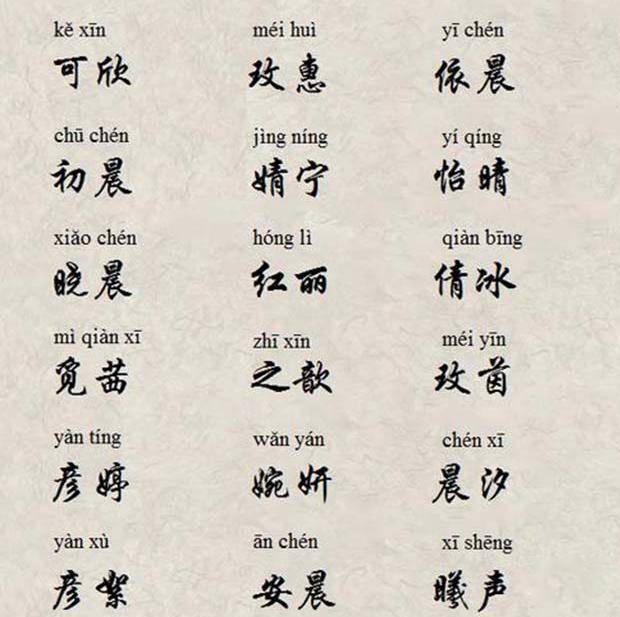 kě xīn méi huì yī chén
可欣 玫惠 依晨
chū chén jìng níng yí qíng
初晨 婧宁 怡晴
xiǎo chén hóng lì qiàn bīng
晓晨 红丽 倩冰
mì qiàn xī zhī xīn méi yīn
觅茜 之歆 玫茵
yàn tíng wǎn yán chén xī
彦婷 婉妍 晨汐
yàn xù ān chén xī shēng
彦絮 安晨 曦声